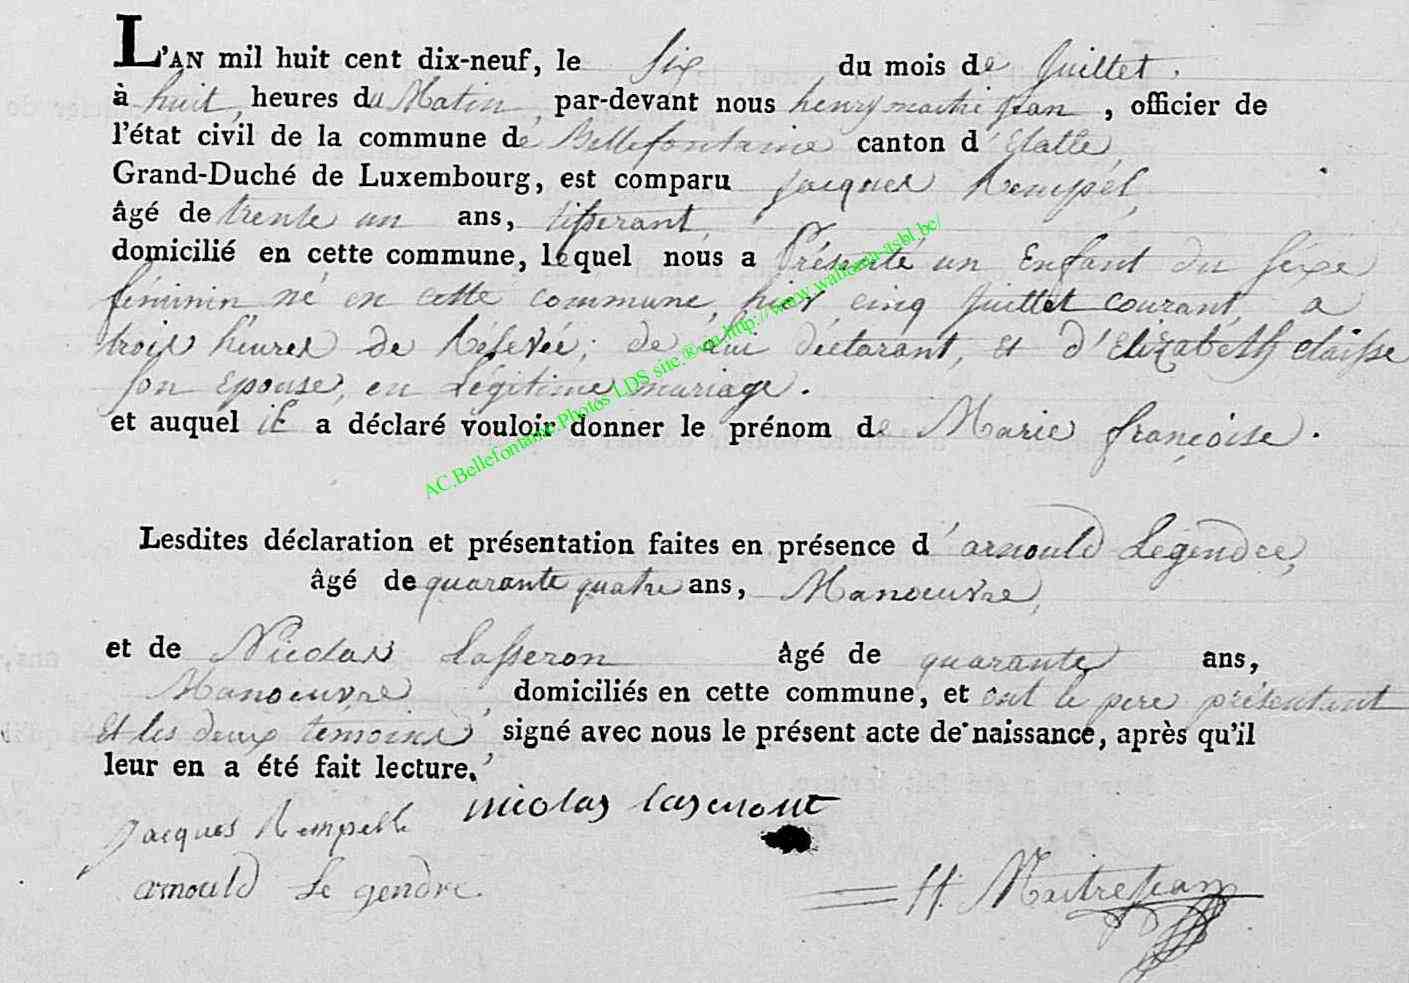 L'AN mil huit cent dix-neuf, le Six du mois de Juillet.
à huit, heures du Matin, par-devant nous henry maitre jean, officier de
l'état civil de la commune de Bellefontaine canton d'Etalle,
Grand-Duché de Luxembourg, est comparu jacques Rempel,
âgé de trente un ans, tisserant,
domicilié en cette commune, lequel nous a Présenté un Enfant du sexe
féminin né en cette commune, hier, cinq juillet courant, a
trois heures de Rélevée; de lui déclarant, et d'Elizabeth claisse
son Epouse, en Légitime mariage.
et auquel il a déclaré vouloir donner le prénom de Marie françoise.
AC.Bellefontaine.Photos LDS site ® en http://www.wallonia-asbl.be/
Lesdites déclaration et présentation faites en présence d'arnould Légendre,
âgé de quarante quatre ans, Manoeuvre,
et de Nicolas Lasseron âgé de quarante ans,
Manoeuvre, domiciliés en cette commune, et ont le pere présentant
Et les deux temoins, signé avec nous le présent acte de naissance, après qu'il
leur en a été fait lecture.
Jacques Rempelle nicolas
arnould Le gendre
H. Maitrejean